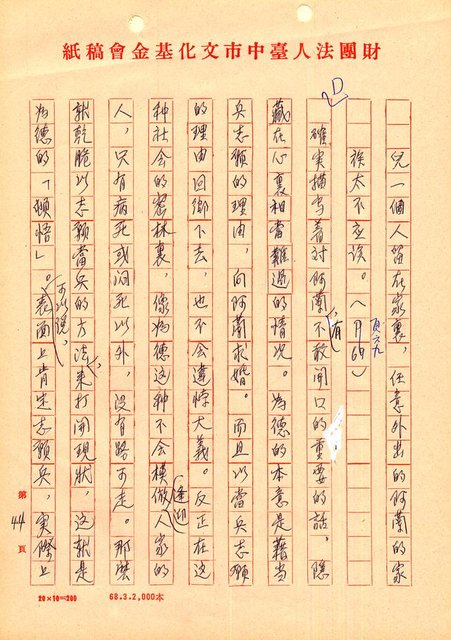 財團法人臺中市文化基金會稿紙
兒一個人留在家裏，任意外出的阿蘭的家
族太不应該。（頁六九 P69）
確実描写着对阿蘭不敢開口的重要的話，隱
藏在心裏相當難過的情況。為德的本意是藉当
兵志願的理由，向阿蘭求婚。而且以當兵志願
的理由回鄉下去，也不会違悖大義。反正在这
种社会的密林裏，像為德这种不会模倣逢迎人家的
人，只有病死或闷死以外，没有路可走。那麽
就乾脆以志願當兵的方法，來打開現狀，这就是
為德的「頓悟」。可以說，表面上肯定志願兵，実際上
第 44 頁
20×10=200
68.3.2,000本